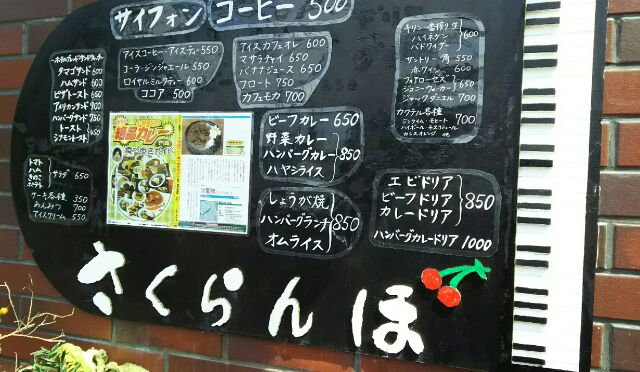 サイフォン コーヒー 500
アイスコーヒー・アイスティー 550
コーラ・ジンジャエール 550
ロイヤルミルクティー 600
ココア 500
アイスカフェオレ 600
マサラチャイ 650
バナナジュース 650
フロート 750
カフェモカ 700
キリン一番搾り生
ハイネケン
バドワイザー
600
サントリー角 550
赤ワイン 600
フォアローゼス
ジョニーウォーカー
650
ジャックダニエル 700
カクテル各種 700
ジンライム・モヒート
ハイボール
カシスオレンジ 他
タマゴサンド 600
ハムサンド 600
ピザトースト 650
アメリカンサンド 900
ハンバーグサンド 700
トースト
シナモントースト
450
トマト
ハム
きのこ
ポテト
サラダ 650
ケーキ各種 350
あんみつ 700
アイスクリーム 550
絶品カレー
ビーフカレー 650
野菜カレー
ハンバーグカレー
ハヤシライス
850
しょうが焼
ハンバーグランチ
オムライス
850
エビドリア
ビーフドリア
カレードリア
850
ハンバーグカレードリア 1000
さくらんぼ